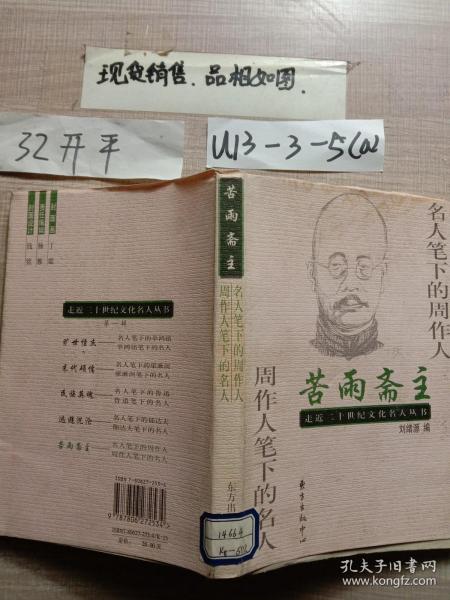 现货销售、品相如图.
32开平
U13-3-5(02
苦雨斋主
名人笔下的周作人
周作人笔下的名人
东方出
走近二十世纪文化名人丛书
第一辑
旷世怪杰
名人笔下的辜鸿铭
辜鸿铭笔下的名人
末代硕儒
名人笔下的梁漱溟
梁漱溟笔下的名人
民族英魂
名人笔下的鲁迅
鲁迅笔下的名人
沉沦
名人笔下的郁达夫
郁达夫笔下的名人
苦雨斋主
名人笔下的周作人
周作人笔下的名人
ISBN 7-80627-253-4
9787806272534>
名人笔下的周作人
苦雨斋主
走近二十世纪文化名人丛书
刘绪源 编
周作人笔下的名人
东方出版中心
14664
孔夫子旧书网
www.kongfz.com